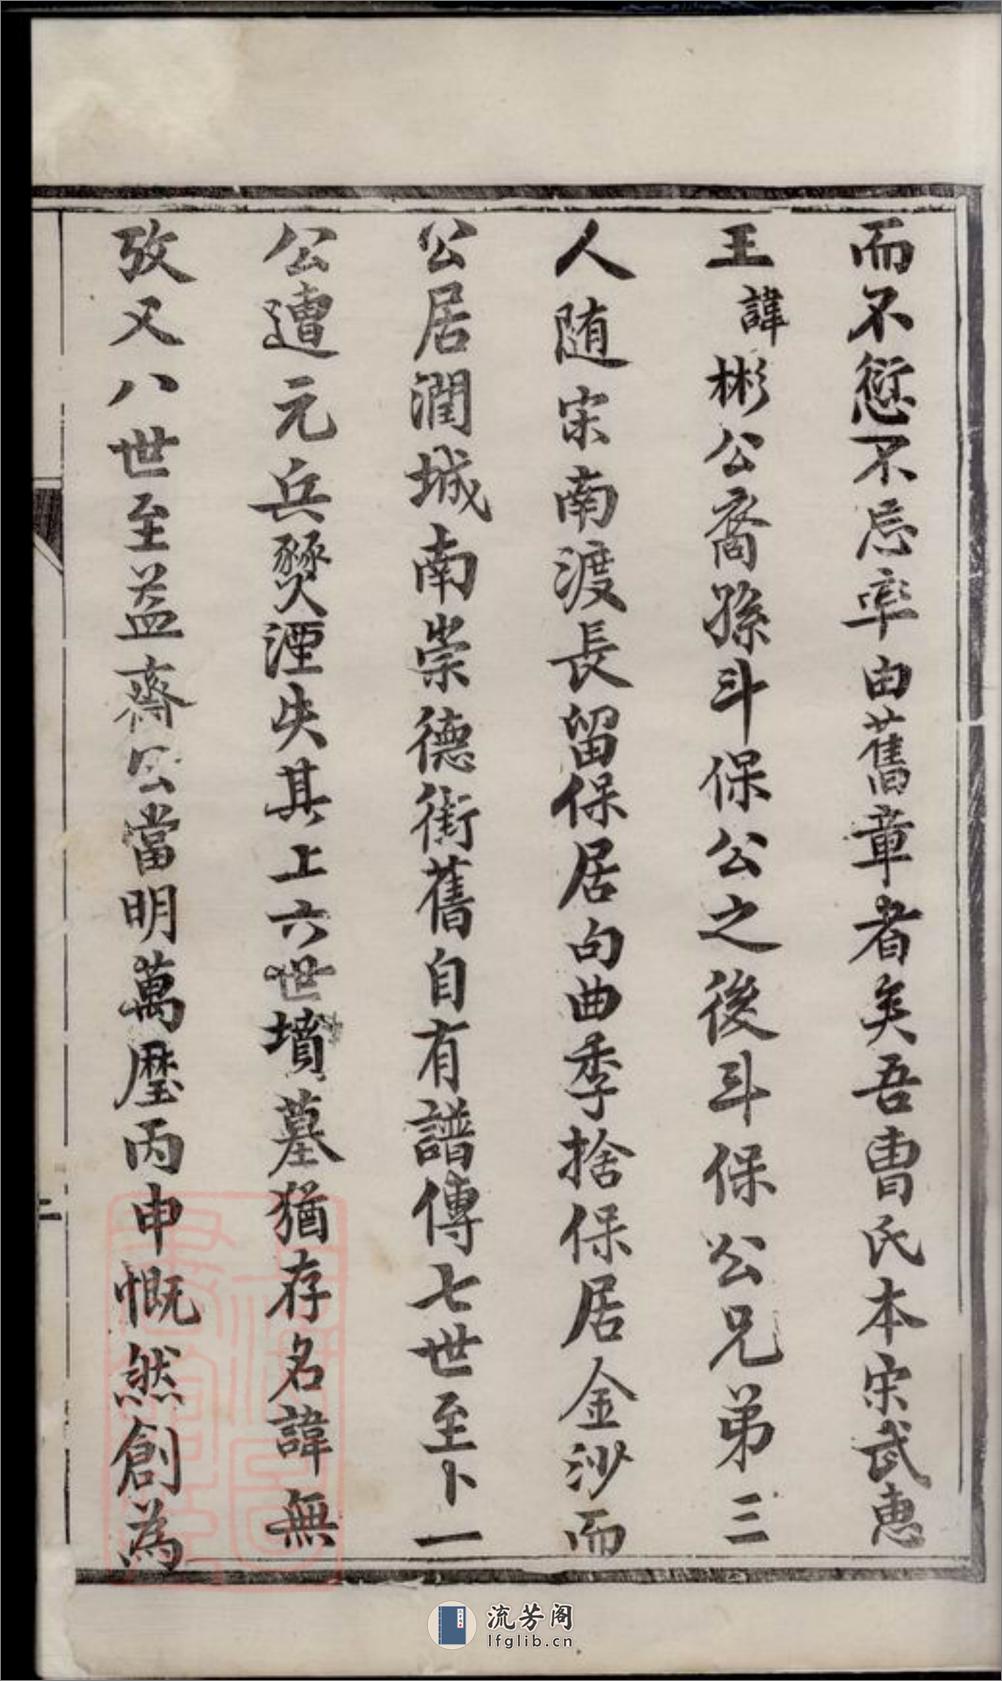 而不愆不忘率由舊章者矣吾曹氏本宋武惠
王諱彬公裔孫斗保公之後斗保公兄弟三
人随宋南渡長留保居句曲季捨保居金沙而
公居潤城南崇德街舊自有譜傳七世至卜一
公遭元兵燹湮失其上六世墳墓猶存名諱無
攷又八世至益齋公當明萬歷丙申慨然創為
二
流芳阁
lfglib.cn